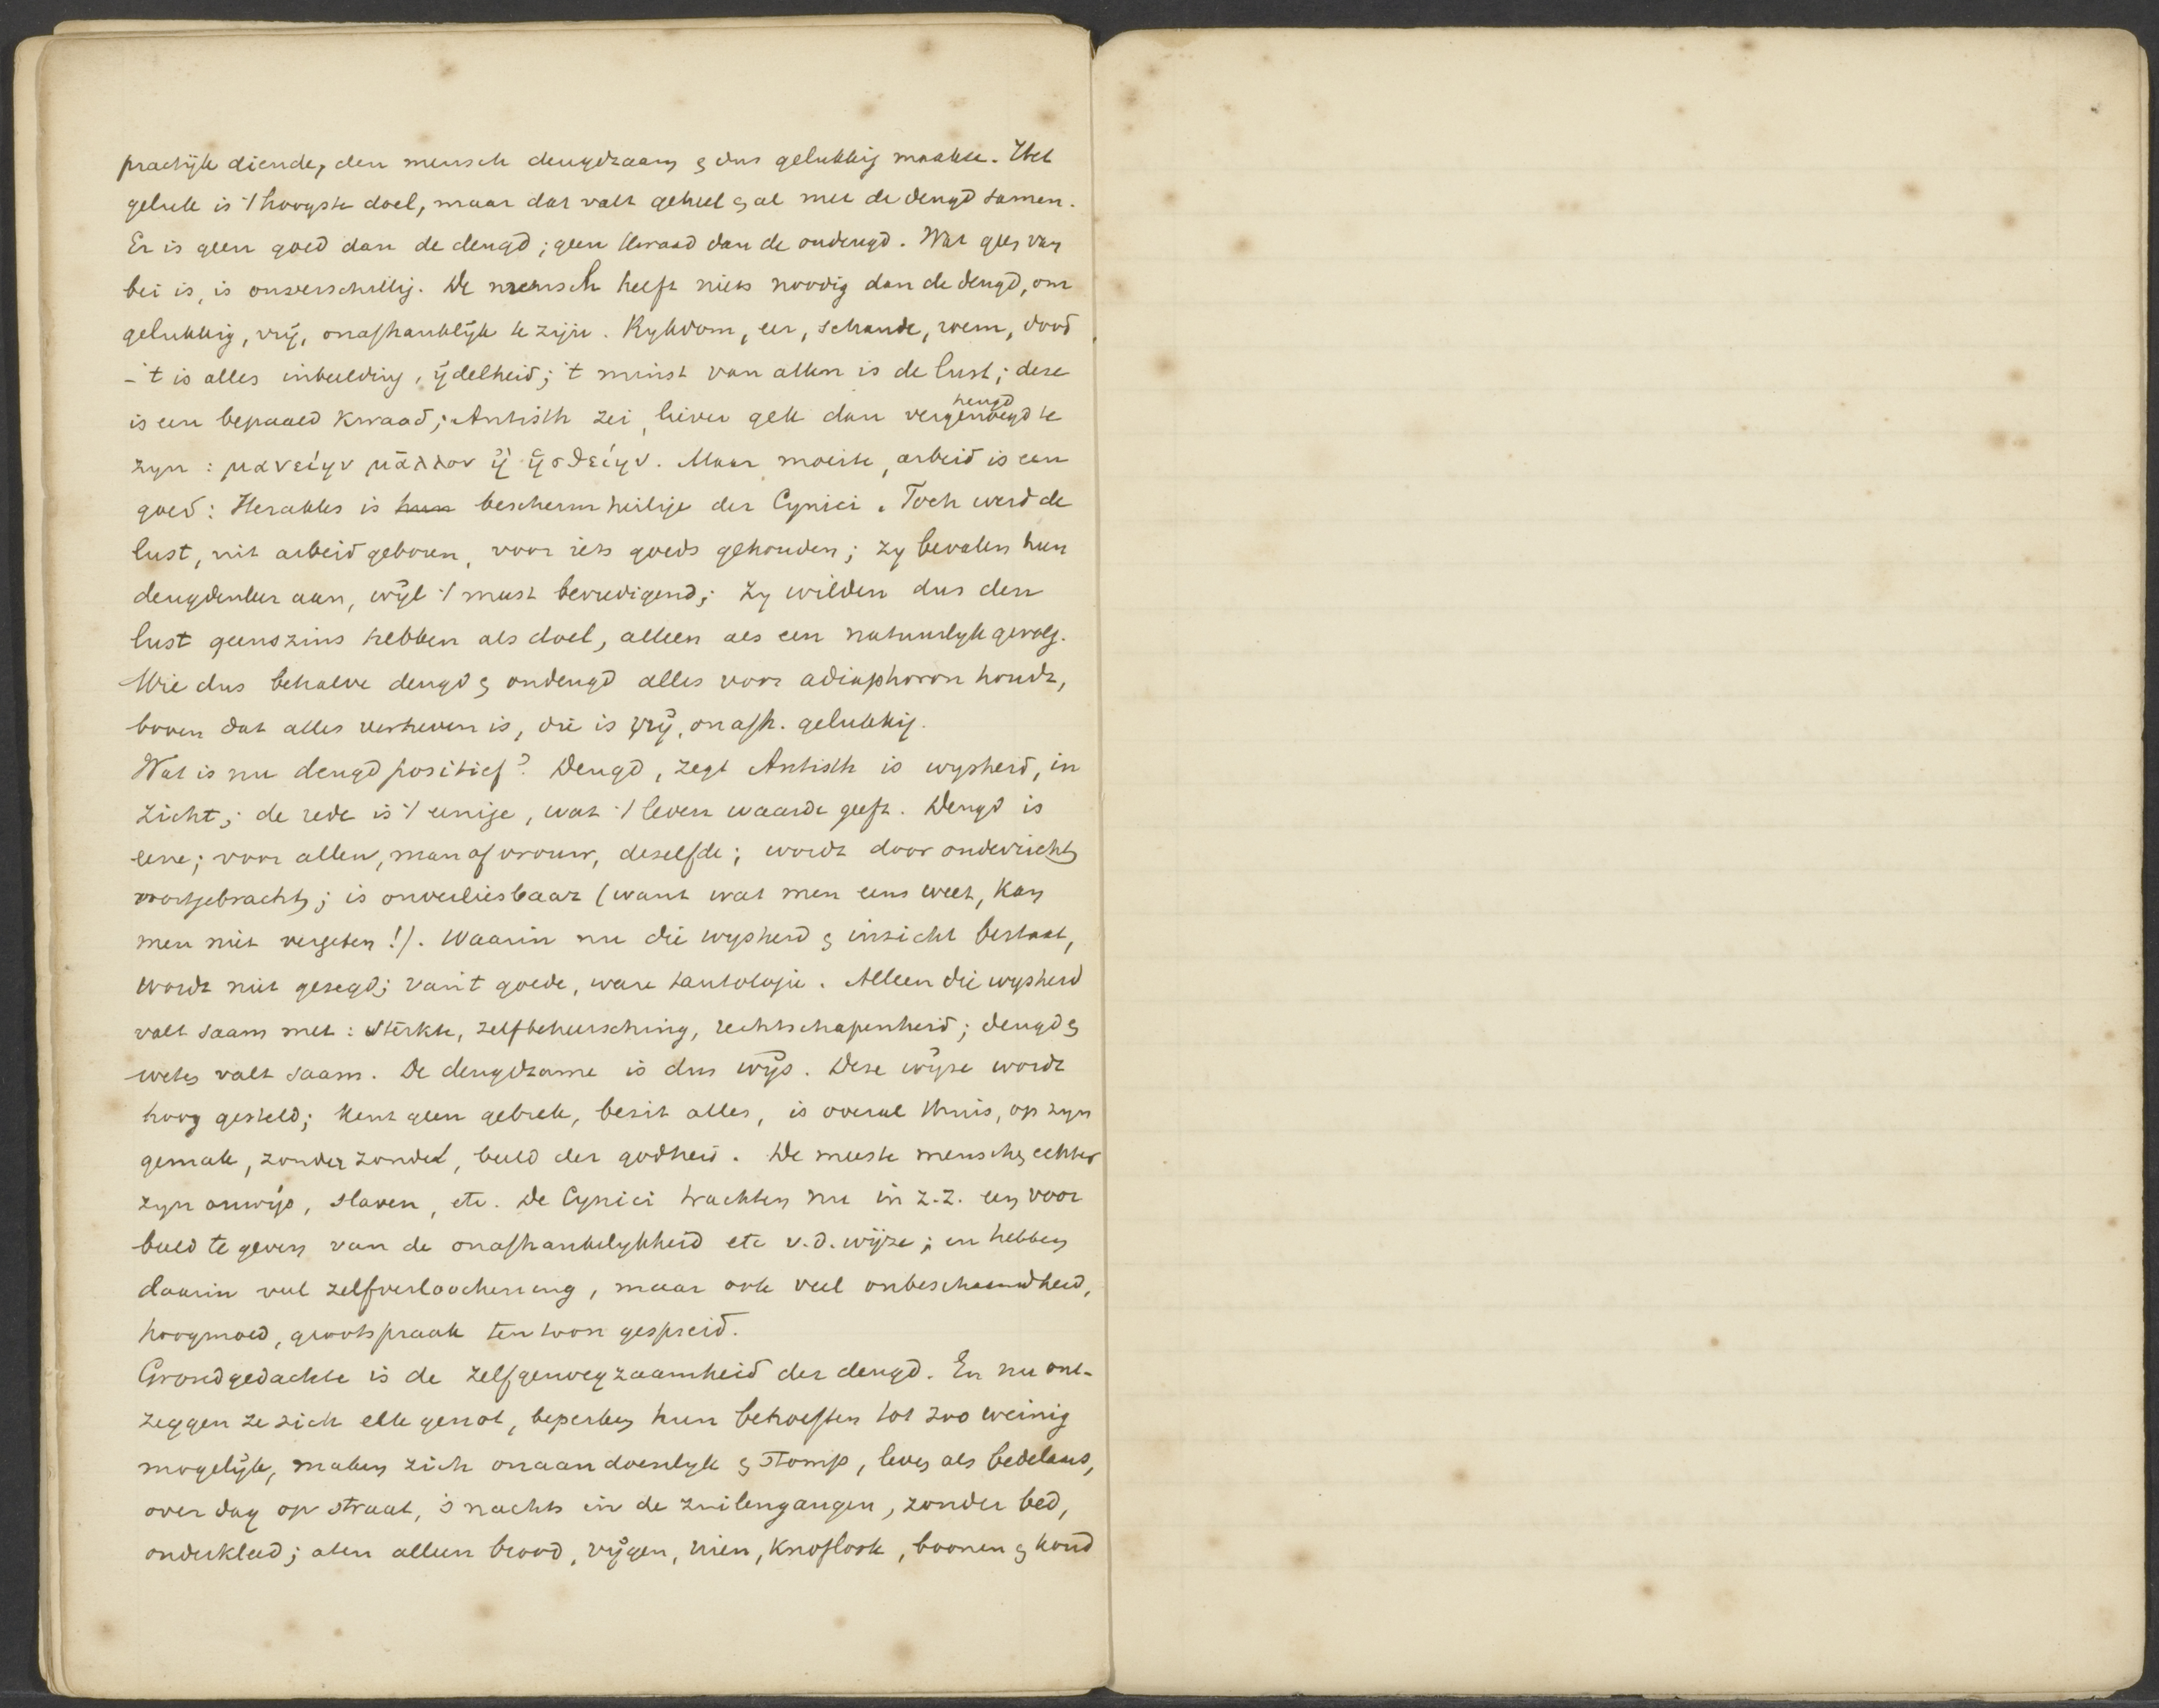 practijk diende, den mensch deugdzaam & dus gelukkig maakte. Het
geluk is 't hoogste doel, maar dat valt geheel & al met de deugd samen.
Er is geen goed dan de deugd; geen kwaad dan de ondeugd. Wat geen van
bei is, is onverschillig. De mensch heeft niets noodig dan de deugd, om
gelukkig, vrij, onafhanklijk te zijn. Rykdom, eer, schande, roem, dood
- 't is alles inbeelding, ijdelheid; 't minst van allen is de lust; deze
is een bepaald kwaad; Antisth zei, liever gek dan vergenoegd te
heugd
zyn: μανείην μᾶλλον ἢ ἡσθείην. Maar moeite, arbeid is een
goed: Herakles is hun beschermheilige der Cynici. Toch werd de
lust, uit arbeid geboren, voor iets goeds gehouden; zy bevalen hun
deugdenleer aan, wijl 't meest bevredigend; zy wilden dus den
lust geenszins hebben als doel, alleen als een natuurlyk gevolg.
Wie dus behalve deugd & ondeugd alles voor adiaphoron houdt,
boven dat alles verheven is, die is vrij, onafh. gelukkig.
Wat is nu deugd positief? Deugd, zegt Antisth is wysheid, in
zicht; de rede is 't eenige, wat 't leven waarde geeft. Deugd is
eene; voor allen, man of vrouw, dezelfde; wordt door onderricht
voortgebracht; is onverliesbaar (want wat men eens weet, kan
men niet vergeten!). Waarin nu die wysheid & inzicht bestaat,
wordt niet gezegd; van 't goede, ware tautologie. Alleen die wysheid
valt saam met: sterkte, zelfbeheersching, rechtschapenheid; deugd &
weten valt saam. De deugdzame is dus wijs. Deze wijze wordt
hoog gesteld; kent geen gebrek, bezit alles, is overal thuis, op zyn
gemak, zonder zonde, beeld der godheid. De meeste menschen echter
zyn onwijs, slaven, etc. De Cynici trachten nu in z.z. een voor
beeld te geven van de onafhankelykheid etc v.d. wijze; en hebben
daarin veel zelfverloochening, maar ook veel onbeschaamdheid,
hoogmoed, grootspraak ten toon gespreid.
Grondgedachte is de zelfgenoegzaamheid der deugd. En nu ont-
zeggen ze zich elk genot, beperken hun behoeften tot zoo weinig
mogelijk, maken zich onaandoenlyk & stomp, leven als bedelaars,
over dag op straat, 's nachts in de zuilengangen, zonder bed,
onderkleed; aten alleen brood, vijgen, uien, knoflook, boonen & koud